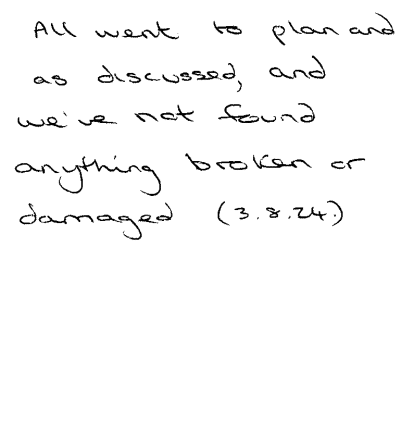 All went to plan and
as discussed, and
we've not found
anything broken or
damaged (3.8.24.)